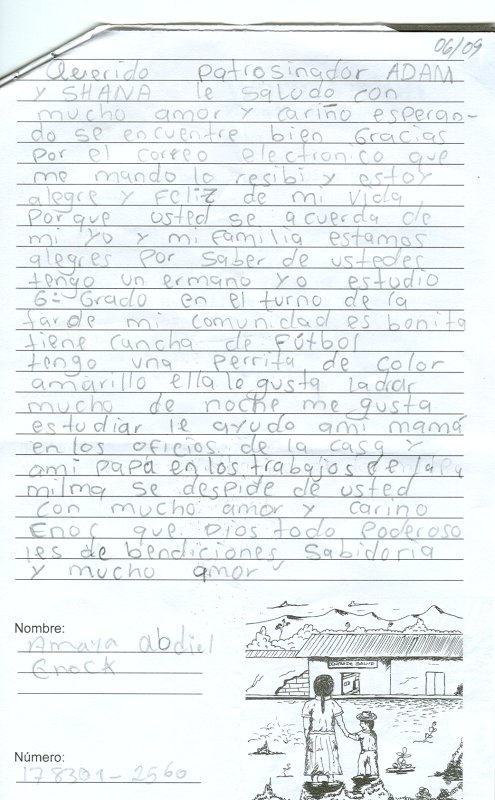 06/09
Querido patrosinador ADAM
y SHANA le saludo con
mucho amor y cariño esperan-
do se encuentre bien Gracias
por el correo electronico que
me mando lo resibi y estoy
alegre y Feliz de mi vida,
Porque usted se acuerda de
mi yo y mi familia estamos
alegres por saber de ustedes
tengo un ermano yo estudio
6= Grado en el turno de la
tarde mi comunidad es bonita
tiene cancha de Fútbol
tengo una perrita de color
amarillo ella le gusta ladrar
mucho de noche me gusta
estudiar le ayudo ami mamá
en los oficios de la casa y
ami papá en los trabajos de
milma se despide de usted
con mucho amor y carino
Enoc que Dios todo Poderoso
les de bendiciones, Sabidoria
y mucho amor
Nombre:
Amaya abdiel
Enock
CENTRO DE SALUD
Número:
178301-2560